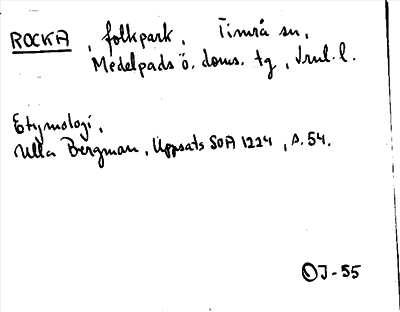 ROCKA, folkpark. Timrå sn,
Medelpads ö. doms. tg, Vnl. l.
Etymologi,
Ulla Bergman, Uppsats SOA 1224, s. 54.
OJ-55